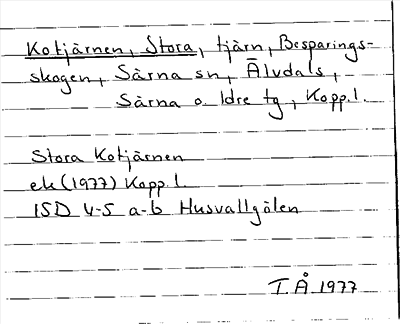 Kotjärnen, Stora, tjärn, Besparings-
skogen, Särna sn, Älvdals,
Särna o Idre tg, Kopp.l.
Stora Kotjärnen
ek (1977) Kopp.l.
15D 4-5 a-b Husvallgölen
T.Å 1977